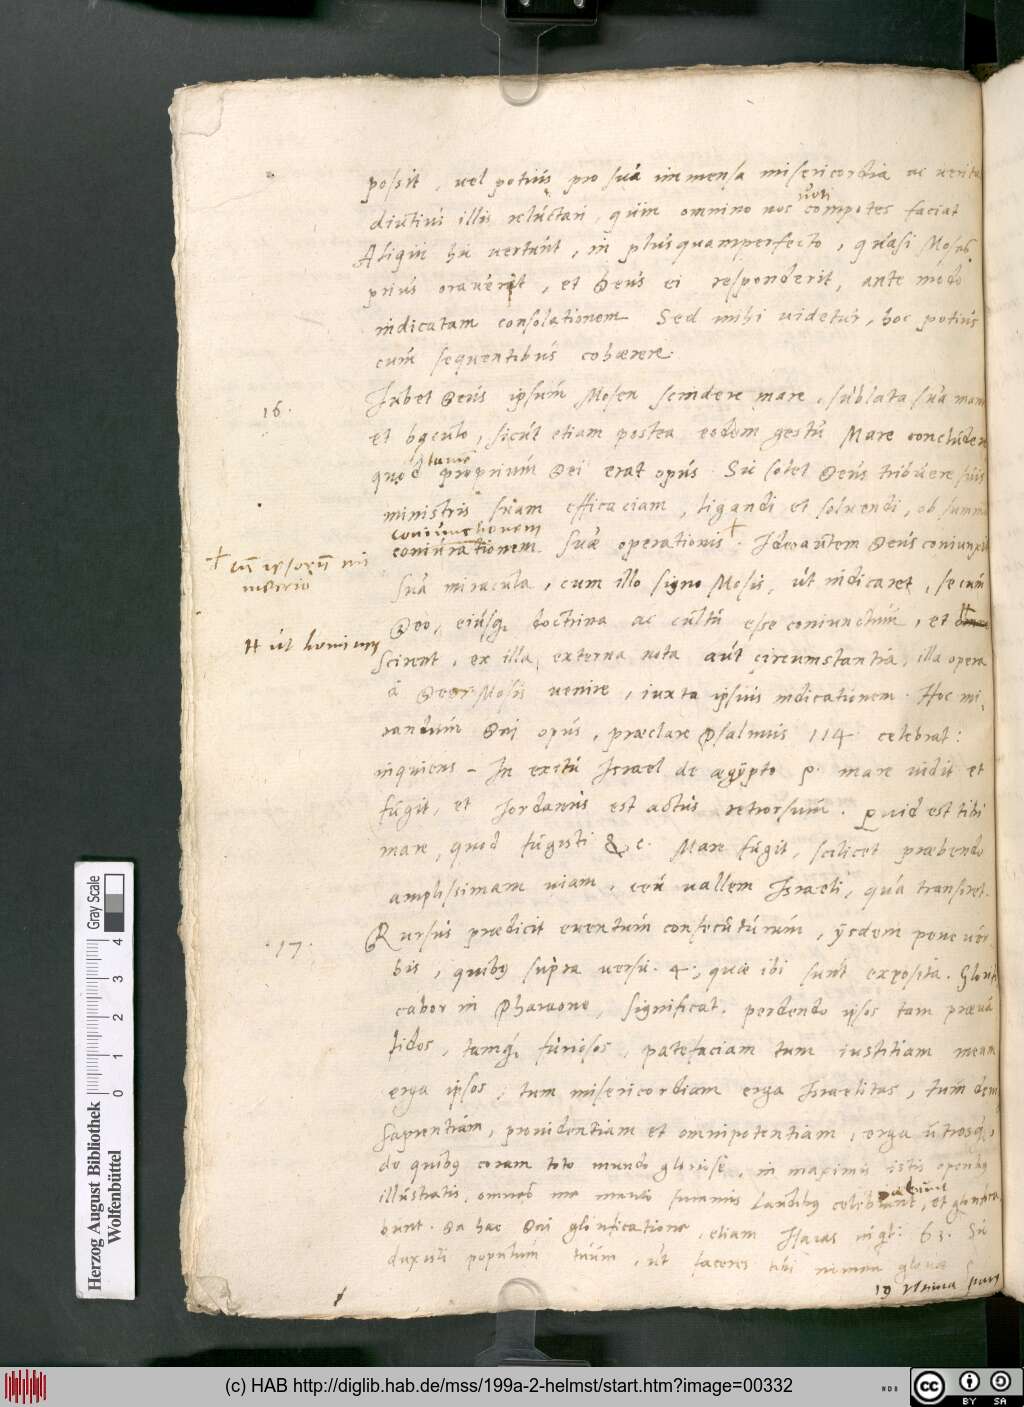 possit, vel potius pro sua immensa misericordia ac verita
diutius illis reluctari, quin omnino nos voti compotes faciat
Aliqui hic vertunt, in plusquamperfecto, quasi Moses
prius oraverit, et Deus ei responderit, ante modo
indicatam consolationem. Sed mihi videtur, hoc potius
cum sequentibus cohærere.
16. Jubet Deus ipsum Mosen scindere mare, sublata sua manu
et baculo, sicut etiam postea eodem gestu Mare concludere
quod proprium Dei erat opus. Sic solet Deus tribuere suis
ministris suam efficaciam, ligandi et solvendi, ob summa
coniunctionem
coniurationem suæ operationis +. Ideo autem Deus coniunxit
+ cum ipsorum mi
nisterio
sua miracula, cum illo signo Mosis, ut indicaret, se cum
Deo, eiusq. doctrina ac cultu esse coniunctum, et
# ut homines
scirent, ex illa externa nota aut circumstantia, illa opera
a Deo Mosis venire, iuxta ipsius indicationem. Hoc mi,
randum Dei opus, præclare Psalmus 114 celebrat:
inquiens - In exitu Israel de ægypto p. mare vidit et
fugit, et Jordanus est actus retrorsum. Quid est tibi
mare, quod fugisti &c. Mare fugit, scilicet præbendo
amplissimam viam, ceu vallem Israeli, qua transiret.
17. Rursus prædicit eventum consecuturum, ÿsdem pene ver
bis, quibus supra versu. 4., quæ ibi sunt exposita. Glorifi
cabor in Pharaone, significat. perdendo ipsos tam præva
lidos, tamq. furiosos, patefaciam tum iustitiam meam
erga ipsos, tum misericordiam erga Israelitas, tum den
sapientiam, providentiam et omnipotentiam, erga utrosq.,
de quibus coram toto mundo gloriose, in maximis istis operibus
illustratis, omnes me merito summis laudibus celebrabunt, et glorifica
bunt. De hac Dei glorificatione, etiam Isaias inqt: 63. Sic
duxisti populum tuum, ut faceres tibi nomen gloriæ
19 ultima pars
Herzog August Bibliothek
Wolfenbüttel
Gray Scale
0 1 2 3 4
(c) HAB http://diglib.hab.de/mss/199a-2-helmst/start.htm?image=00332
cc BY SA